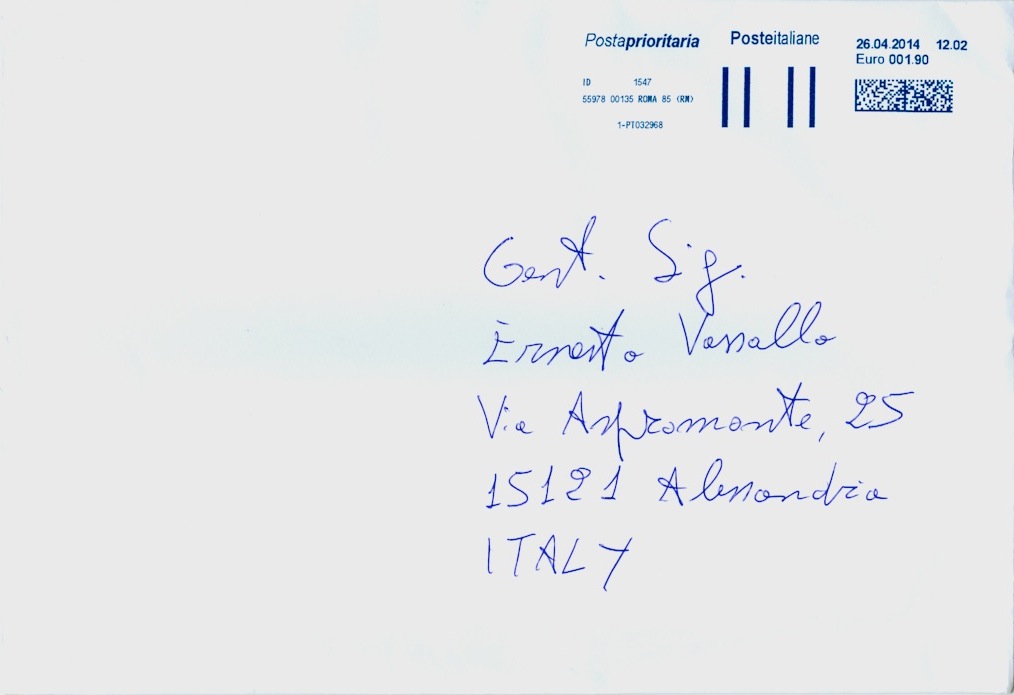 Postaprioritaria Posteitaliane 26.04.2014 12.02
Euro 001.90
ID 1547
55978 00135 ROMA 85 (RM)
1-PT032968
Gent. Sig.
Ernesto Vassallo
Via Aspromonte, 25
15121 Alessandria
ITALY